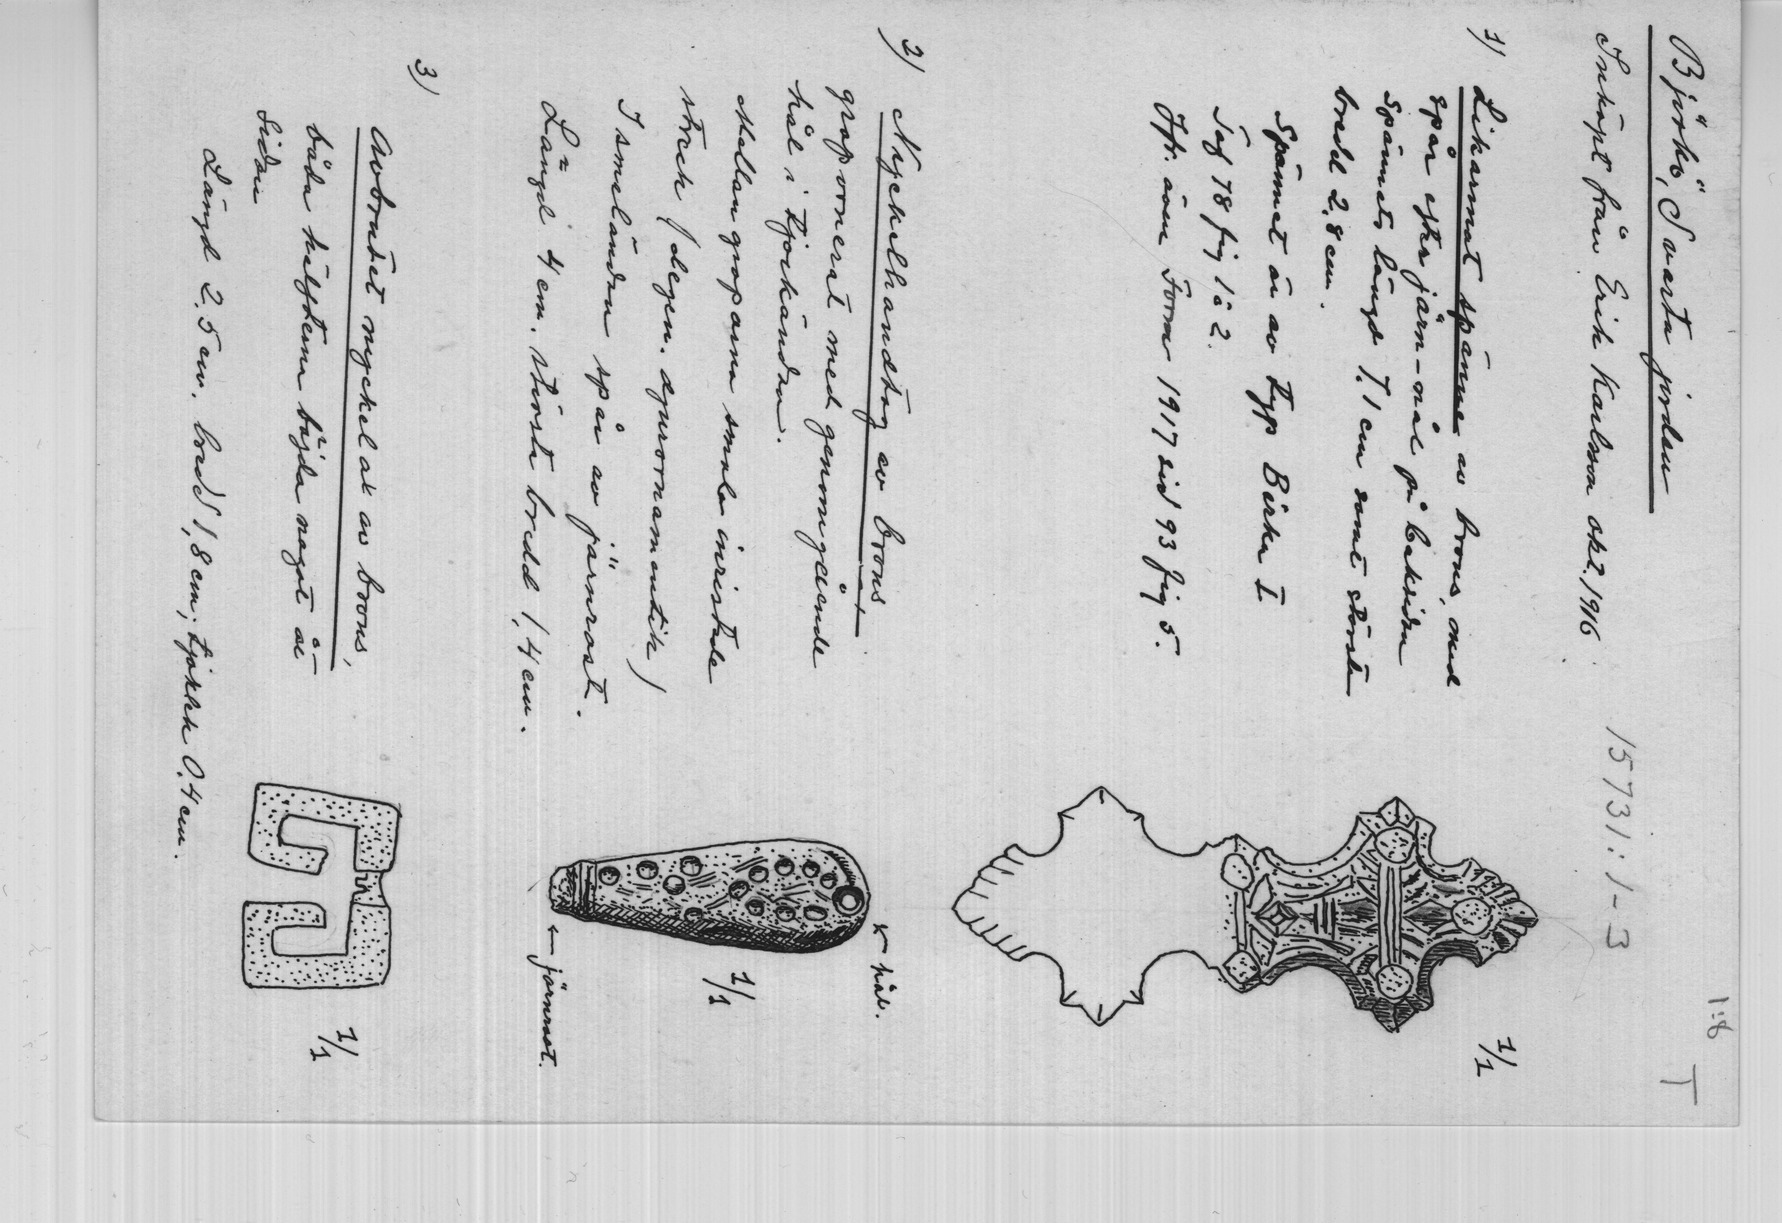 Björkö, Svarta jorden
1:8 T
Inköpt från Erik Karlsson okt. 1916.
15731:1-3
1) Likarmat spänne av brons, med
spår efter järn-nål på baksidan
spännets längd 7.1 cm samt största
bredd 2,8 cm.
Spännet är av typ Birka I
Taf 78 fig 1 o 2.
Jfr. även Fornv 1917 sid 93 fig 5.
1/1
2) Nyckelhandtag av brons
gropornerat med genomgående
hål i tjockändan.
Mellan groparna smala inristade
streck (degen. djurornamentik)
I smaländan spår av järnrost.
Längd 4 cm. största bredd 1,4 cm.
← hål.
1/1
← järnrost.
3) Avbrutet nyckelax av brons,
båda hälfterna böjda något åt
sidan
Längd 2,5 cm. bredd 1,8 cm; tjockl 0,4 cm.
1/1